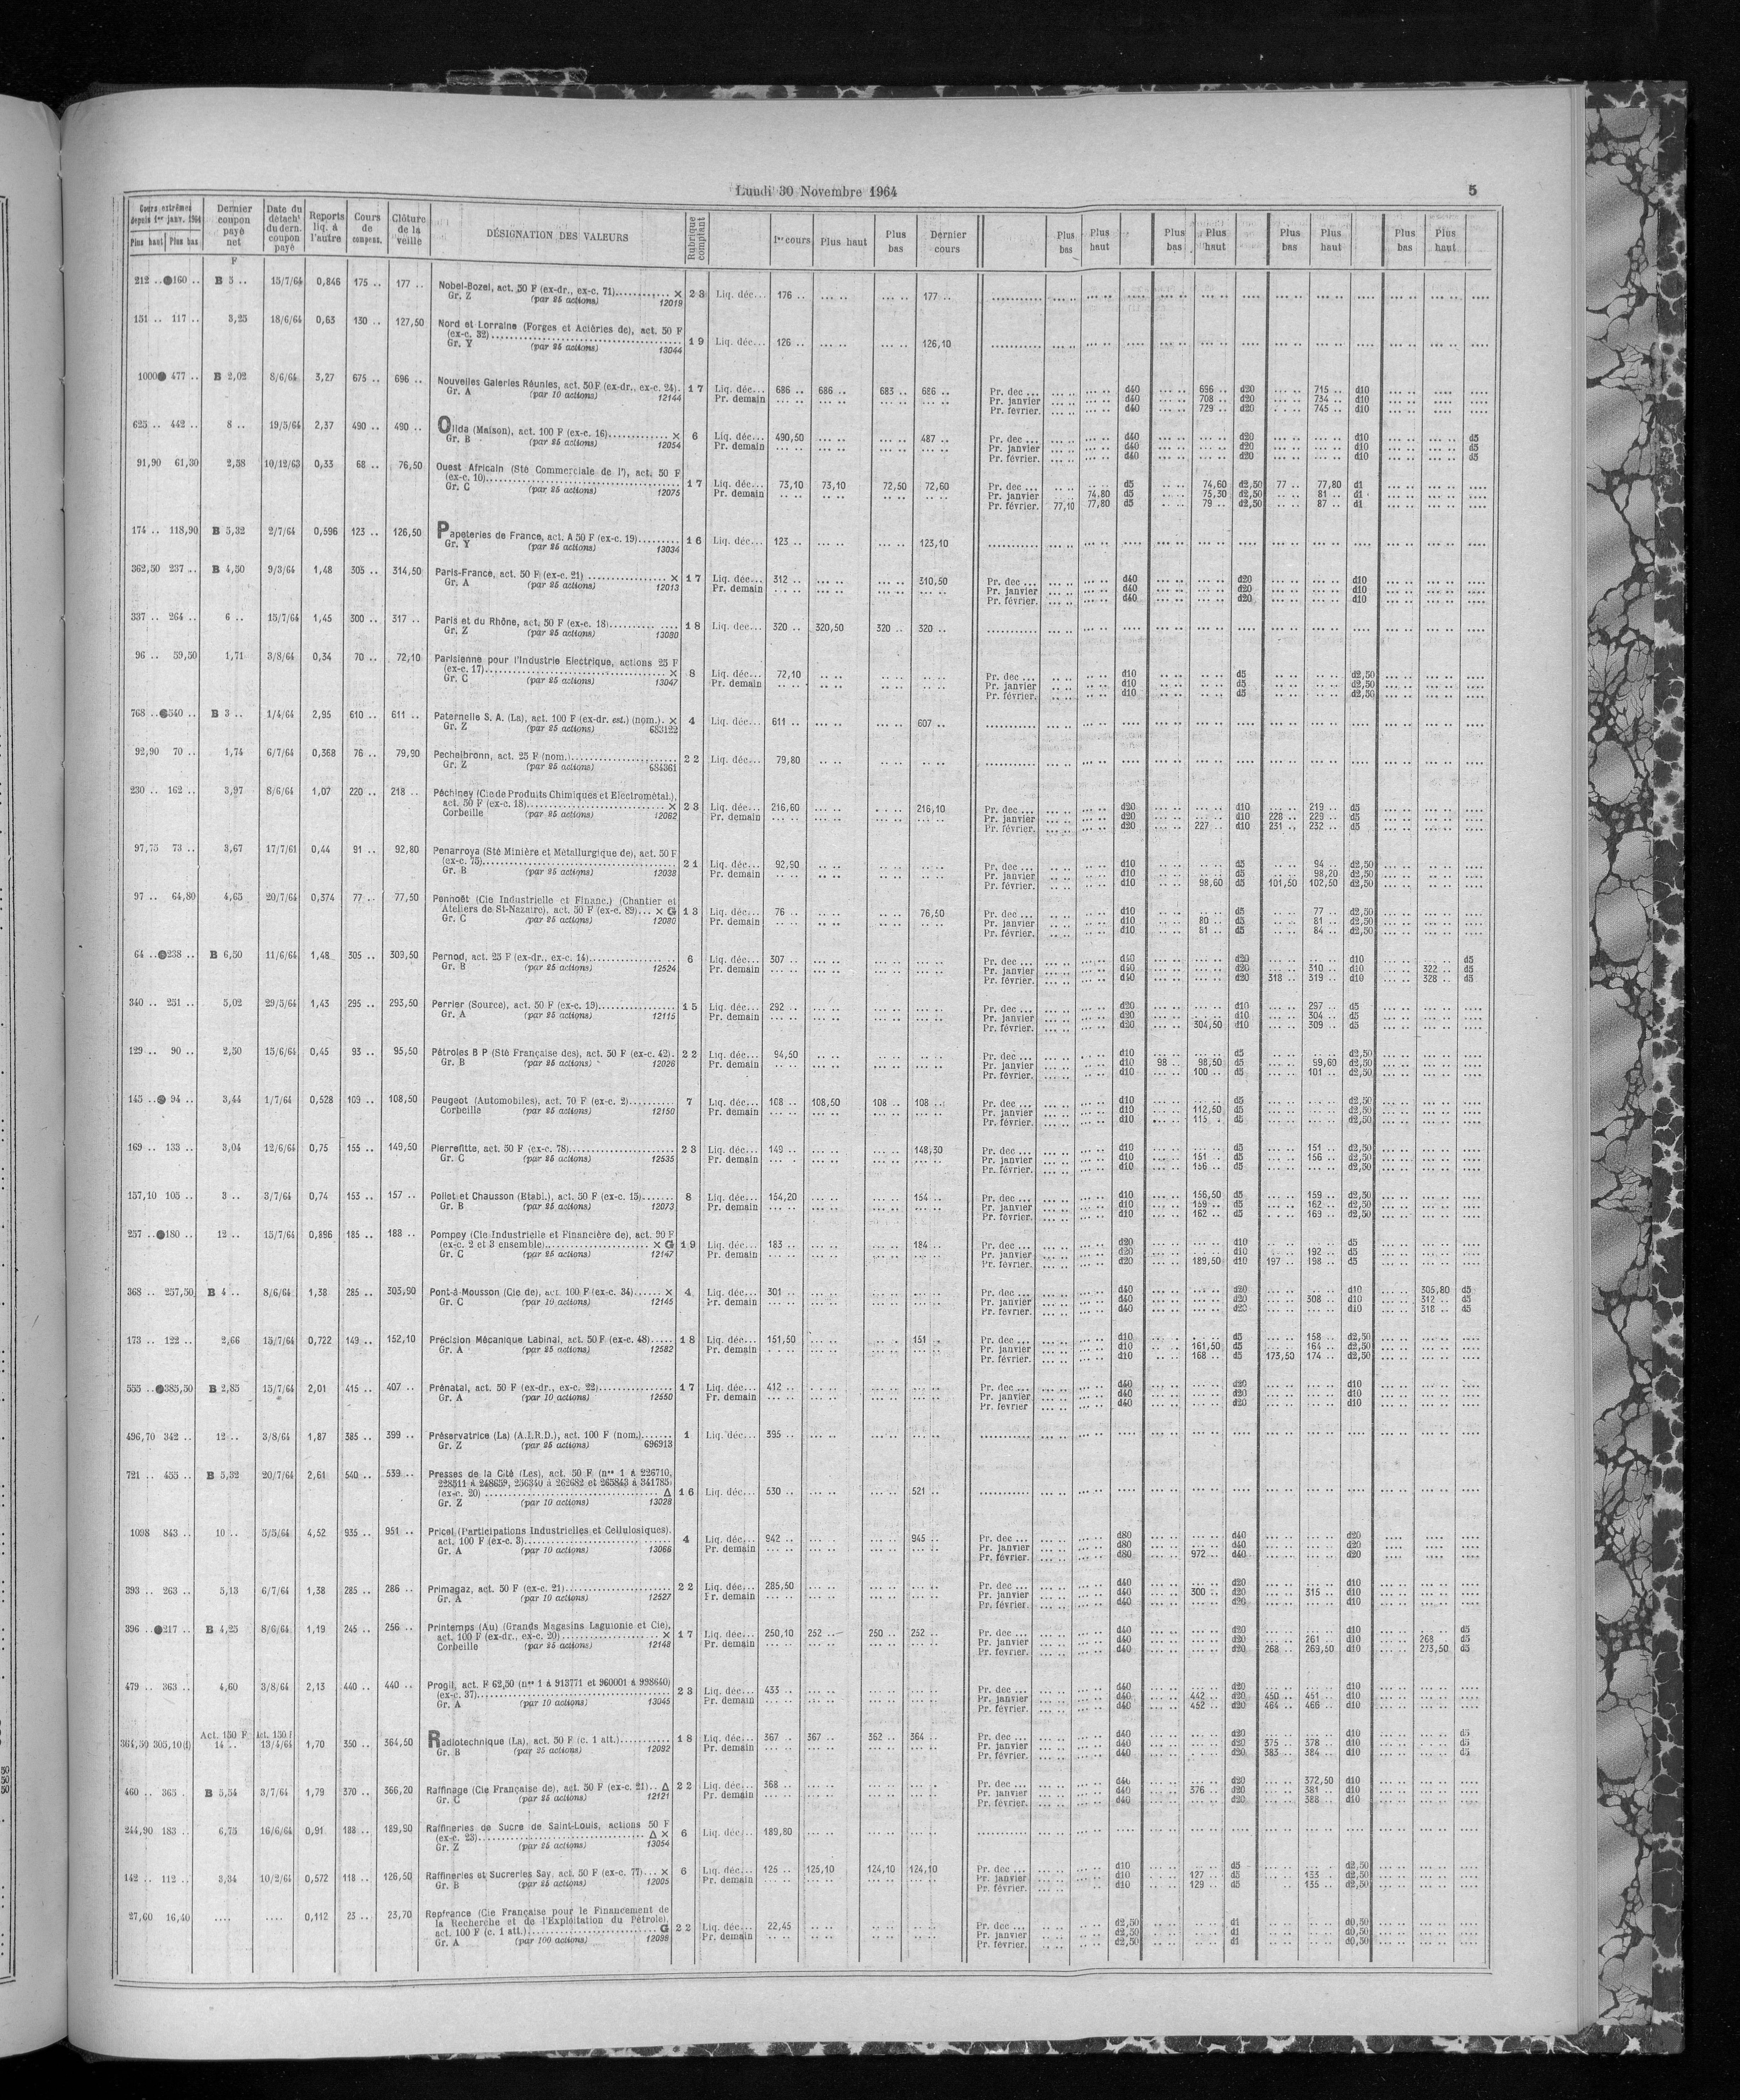 Lundi 30 Novembre 1964 5
Cours extrêmes depuis 1er janv. 1964 Plus haut Plus bas Dernier coupon payé net Date du détacht du dern. coupon payé Reports liq. à l'autre Cours de compens. Clôture de la veille DÉSIGNATION DES VALEURS Rubrique comptant 1er cours Plus haut Plus bas Dernier cours Plus bas Plus haut Plus bas Plus haut Plus bas Plus haut Plus bas Plus haut
F
212 .. 160 .. B 5 .. 15/7/64 0,846 175 .. 177 .. Nobel-Bozel, act. 50 F (ex-dr., ex-c. 71) × 23 Liq. déc... 176 .. 177 ..
Gr. Z (par 25 actions) 12019
151 .. 117 .. 3,25 18/6/64 0,63 130 .. 127,50 Nord et Lorraine (Forges et Aciéries de), act. 50 F
(ex-c. 32) 19 Liq. déc... 126 .. 126,10
Gr. Y (par 25 actions) 13044
1000 477 .. B 2,02 8/6/64 3,27 675 .. 696 .. Nouvelles Galeries Réunies, act. 50 F (ex-dr., ex-c. 24). 17 Liq. déc... 686 .. 686 .. 683 .. 686 .. Pr. dec ... d40 696 .. d20 715 .. d10
Gr. A (par 10 actions) 12144 Pr. demain Pr. janvier d40 708 .. d20 734 .. d10
Pr. février. d40 729 .. d20 745 .. d10
625 .. 442 .. 8 .. 19/5/64 2,37 490 .. 490 .. Olida (Maison), act. 100 F (ex-c. 16) × 6 Liq. déc... 490,50 487 .. Pr. dec ... d40 d20 d10 d5
Gr. B (par 25 actions) 12054 Pr. demain Pr. janvier d40 d20 d10 d5
Pr. février. d40 d20 d10
91,90 61,30 2,58 10/12/63 0,33 68 .. 76,50 Ouest Africain (Sté Commerciale de l'), act. 50 F
(ex-c. 10) 17 Liq. déc... 73,10 73,10 72,50 72,60 Pr. dec ... d5 74,60 d2,50 77 .. 77,80 d1
Gr. C (par 25 actions) 12075 Pr. demain Pr. janvier 74,80 d5 75,30 d2,50 81 .. d1
Pr. février. 77,10 77,80 d5 79 .. d2,50 87 .. d1
174 .. 118,90 B 5,32 2/7/64 0,596 123 .. 126,50 Papeteries de France, act. A 50 F (ex-c. 19) 16 Liq. déc... 123 .. 123,10
Gr. Y (par 25 actions) 13034
362,50 237 .. B 4,50 9/3/64 1,48 305 .. 314,50 Paris-France, act. 50 F (ex-c. 21) × 17 Liq. déc... 312 .. 310,50 Pr. dec ... d40 d20 d10
Gr. A (par 25 actions) 12013 Pr. demain Pr. janvier d40 d20 d10
Pr. février. d40 d20 d10
337 .. 264 .. 6 .. 15/7/64 1,45 300 .. 317 .. Paris et du Rhône, act. 50 F (ex-c. 18) 18 Liq. dec... 320 .. 320,50 320 .. 320 ..
Gr. Z (par 25 actions) 13080
96 .. 59,50 1,71 3/8/64 0,34 70 .. 72,10 Parisienne pour l'Industrie Electrique, actions 25 F
(ex-c. 17) × 8 Liq. déc... 72,10 Pr. dec ... d10 d5 d2,50
Gr. C (par 25 actions) 13047 Pr. demain Pr. janvier d10 d5 d2,50
Pr. février. d10 d5 d2,50
768 .. 540 .. B 3 .. 1/4/64 2,95 610 .. 611 .. Paternelle S. A. (La), act. 100 F (ex-dr. est.) (nom.). × 4 Liq. déc... 611 .. 607 ..
Gr. Z (par 25 actions) 683122
92,90 70 .. 1,74 6/7/64 0,368 76 .. 79,90 Pechelbronn, act. 25 F (nom.) 22 Liq. déc... 79,80
Gr. Z (par 25 actions) 684361
230 .. 162 .. 3,97 8/6/64 1,07 220 .. 218 .. Péchiney (Cie de Produits Chimiques et Electrométal.),
act. 50 F (ex-c. 18) × 23 Liq. déc... 216,60 216,10 Pr. dec ... d20 d10 219 .. d5
Corbeille (par 25 actions) 12062 Pr. demain Pr. janvier d20 d10 228 .. 229 .. d5
Pr. février. d20 227 .. d10 231 .. 232 .. d5
97,75 73 .. 3,67 17/7/61 0,44 91 .. 92,80 Penarroya (Sté Minière et Métallurgique de), act. 50 F
(ex-c. 75) 21 Liq. déc... 92,90 Pr. dec ... d10 d5 94 .. d2,50
Gr. B (par 25 actions) 12038 Pr. demain Pr. janvier d10 d5 98,20 d2,50
Pr. février. d10 98,60 d5 101,50 102,50 d2,50
97 .. 64,80 4,65 20/7/64 0,374 77 .. 77,50 Penhoët (Cie Industrielle et Financ.) (Chantier et
Ateliers de St-Nazaire), act. 50 F (ex-c. 89)... × G 13 Liq. déc... 76 .. 76,50 Pr. dec ... d10 d5 77 .. d2,50
Gr. C (par 25 actions) 12080 Pr. demain Pr. janvier d10 80 .. d5 81 .. d2,50
Pr. février. d10 81 .. d5 84 .. d2,50
64 .. 238 .. B 6,50 11/6/64 1,48 305 .. 309,50 Pernod, act. 25 F (ex-dr., ex-c. 14) 6 Liq. déc... 307 .. Pr. dec ... d40 d20 d10 d5
Gr. B (par 25 actions) 12524 Pr. demain Pr. janvier d40 d20 310 .. d10 322 .. d5
Pr. février. d40 d20 318 .. 319 .. d10 328 .. d5
340 .. 251 .. 5,02 29/5/64 1,43 295 .. 293,50 Perrier (Source), act. 50 F (ex-c. 19) 15 Liq. déc... 292 .. Pr. dec ... d20 d10 297 .. d5
Gr. A (par 25 actions) 12115 Pr. demain Pr. janvier d20 d10 304 .. d5
Pr. février. d20 304,50 d10 309 .. d5
129 .. 90 .. 2,50 15/6/64 0,45 93 .. 95,50 Pétroles B P (Sté Française des), act. 50 F (ex-c. 42). 22 Liq. déc... 94,50 Pr. dec ... d10 d5 d2,50
Gr. B (par 25 actions) 12026 Pr. demain Pr. janvier d10 98 .. 98,50 d5 99,60 d2,50
Pr. février. d10 100 .. d5 101 .. d2,50
145 .. 94 .. 3,44 1/7/64 0,528 109 .. 108,50 Peugeot (Automobiles), act. 70 F (ex-c. 2) 7 Liq. déc... 108 .. 108,50 108 .. 108 .. Pr. dec ... d10 d5 d2,50
Corbeille (par 25 actions) 12150 Pr. demain Pr. janvier d10 112,50 d5 d2,50
Pr. février. d10 115 . d5 d2,50
169 .. 133 .. 3,04 12/6/64 0,75 155 .. 149,50 Pierrefitte, act. 50 F (ex-c. 78) 23 Liq. déc... 149 .. 148,30 Pr. dec ... d10 d5 151 .. d2,50
Gr. C (par 25 actions) 12535 Pr. demain Pr. janvier d10 151 .. d5 156 .. d2,50
Pr. février. d10 156 .. d5 d2,50
157,10 105 .. 3 .. 3/7/64 0,74 153 .. 157 .. Poliet et Chausson (Etabl.), act. 50 F (ex-c. 15) 8 Liq. déc... 154,20 154 .. Pr. dec ... d10 156,50 d5 159 .. d2,50
Gr. B (par 25 actions) 12073 Pr. demain Pr. janvier d10 159 .. d5 162 .. d2,50
Pr. février. d10 162 .. d5 169 .. d2,50
257 .. 180 .. 12 .. 15/7/64 0,896 185 .. 188 .. Pompey (Cie Industrielle et Financière de), act. 90 F
(ex-c. 2 et 3 ensemble) × G 19 Liq. déc... 183 .. 184 .. Pr. dec ... d20 d10 d5
Gr. C (par 25 actions) 12147 Pr. demain Pr. janvier d20 d10 192 .. d5
Pr. février. d20 189,50 d10 197 .. 198 .. d5
368 .. 257,50 B 4 .. 8/6/64 1,38 285 .. 303,90 Pont-à-Mousson (Cie de), act. 100 F (ex-c. 34) × 4 Liq. déc... 301 .. Pr. dec ... d40 d20 d10 305,80 d5
Gr. C (par 10 actions) 12145 Pr. demain Pr. janvier d40 d20 308 .. d10 312 .. d5
Pr. février. d40 d20 d10 318 .. d5
173 .. 122 .. 2,66 15/7/64 0,722 149 .. 152,10 Précision Mécanique Labinal, act. 50 F (ex-c. 48) 18 Liq. déc... 151,50 151 .. Pr. dec ... d10 d5 158 .. d2,50
Gr. A (par 25 actions) 12582 Pr. demain Pr. janvier d10 161,50 d5 164 .. d2,50
Pr. février. d10 168 .. d5 173,50 174 .. d2,50
555 .. 385,50 B 2,85 15/7/64 2,01 415 .. 407 .. Prénatal, act. 50 F (ex-dr., ex-c. 22) 17 Liq. déc... 412 .. Pr. dec ... d40 d20 d10
Gr. A (par 10 actions) 12550 Pr. demain Pr. janvier d40 d20 d10
Pr. février d40 d20 d10
496,70 342 .. 12 .. 3/8/64 1,87 385 .. 399 .. Préservatrice (La) (A.I.R.D.), act. 100 F (nom.) 1 Liq. déc... 395 ..
Gr. Z (par 25 actions) 696913
721 .. 455 .. B 5,32 20/7/64 2,61 540 .. 539 .. Presses de la Cité (Les), act. 50 F (nos 1 à 226710,
228511 à 248659, 256340 à 262682 et 265843 à 341785)
(ex-c. 20) Δ 16 Liq. déc... 530 .. 521 ..
Gr. Z (par 10 actions) 13028
1098 843 .. 10 .. 5/5/64 4,52 935 .. 951 .. Pricel (Participations Industrielles et Cellulosiques).
act. 100 F (ex-c. 3) 4 Liq. déc... 942 .. 945 .. Pr. dec ... d80 d40 d20
Gr. A (par 10 actions) 13066 Pr. demain Pr. janvier d80 d40 d20
Pr. février. d80 972 .. d40 d20
393 .. 263 .. 5,13 6/7/64 1,38 285 .. 286 .. Primagaz, act. 50 F (ex-c. 21) 22 Liq. déc... 285,50 Pr. dec ... d40 d20 d10
Gr. A (par 10 actions) 12527 Pr. demain Pr. janvier d40 300 .. d20 315 .. d10
Pr. février. d40 d20 d10
396 .. 217 .. B 4,25 8/6/64 1,19 245 .. 256 .. Printemps (Au) (Grands Magasins Laguionie et Cie),
act. 100 F (ex-dr., ex-c. 20) × 17 Liq. déc... 250,10 252 .. 250 .. 252 .. Pr. dec ... d40 d20 d10 d5
Corbeille (par 25 actions) 12148 Pr. demain Pr. janvier d40 d20 261 .. d10 268 .. d5
Pr. février. d40 d20 268 .. 269,50 d10 273,50 d5
479 .. 363 .. 4,60 3/8/64 2,13 440 .. 440 .. Progil, act. F 62,50 (nos 1 à 913771 et 960001 à 998640)
(ex-c. 37) 23 Liq. déc... 433 .. Pr. dec ... d40 d20 d10
Gr. A (par 10 actions) 13045 Pr. demain Pr. janvier d40 442 .. d20 450 .. 451 .. d10
Pr. février. d40 452 .. d20 464 .. 466 .. d10
Act. 150 F Act. 150 F
364,50 305,10(l) 14 .. 13/4/64 1,70 350 .. 364,50 Radiotechnique (La), act. 50 F (c. 1 att.) 18 Liq. déc... 367 .. 367 .. 362 .. 364 .. Pr. dec ... d40 d20 d10 d5
Gr. B (par 25 actions) 12092 Pr. demain Pr. janvier d40 d20 375 .. 378 .. d10 d5
Pr. février. d40 d20 383 .. 384 .. d10 d5
460 .. 365 . B 5,54 3/7/64 1,79 370 .. 366,20 Raffinage (Cie Française de), act. 50 F (ex-c. 21).. Δ 22 Liq. déc... 368 .. Pr. dec ... d40 d20 372,50 d10
Gr. C (par 25 actions) 12121 Pr. demain Pr. janvier d40 376 .. d20 381 .. d10
Pr. février. d40 d20 388 .. d10
244,90 183 .. 6,75 16/6/64 0,91 188 .. 189,90 Raffineries de Sucre de Saint-Louis, actions 50 F
(ex-c. 23) Δ × 6 Liq. déc... 189,80
Gr. Z (par 25 actions) 13054
142 .. 112 .. 3,34 10/2/64 0,572 118 .. 126,50 Raffineries et Sucreries Say, act. 50 F (ex-c. 77)... × 6 Liq. déc... 125 .. 125,10 124,10 124,10 Pr. dec ... d10 d5 d2,50
Gr. B (par 25 actions) 12005 Pr. demain Pr. janvier d10 127 .. d5 133 .. d2,50
Pr. février. d10 129 .. d5 135 .. d2,50
27,60 16,40 .... .... 0,112 23 .. 23,70 Repfrance (Cie Française pour le Financement de
la Recherche et de l'Exploitation du Pétrole),
act. 100 F (c. 1 att.) G 22 Liq. déc... 22,45 Pr. dec ... d2,50 d1 d0,50
Gr. A (par 100 actions) 12099 Pr. demain Pr. janvier d2,50 d1 d0,50
Pr. février. d2,50 d1 d0,50